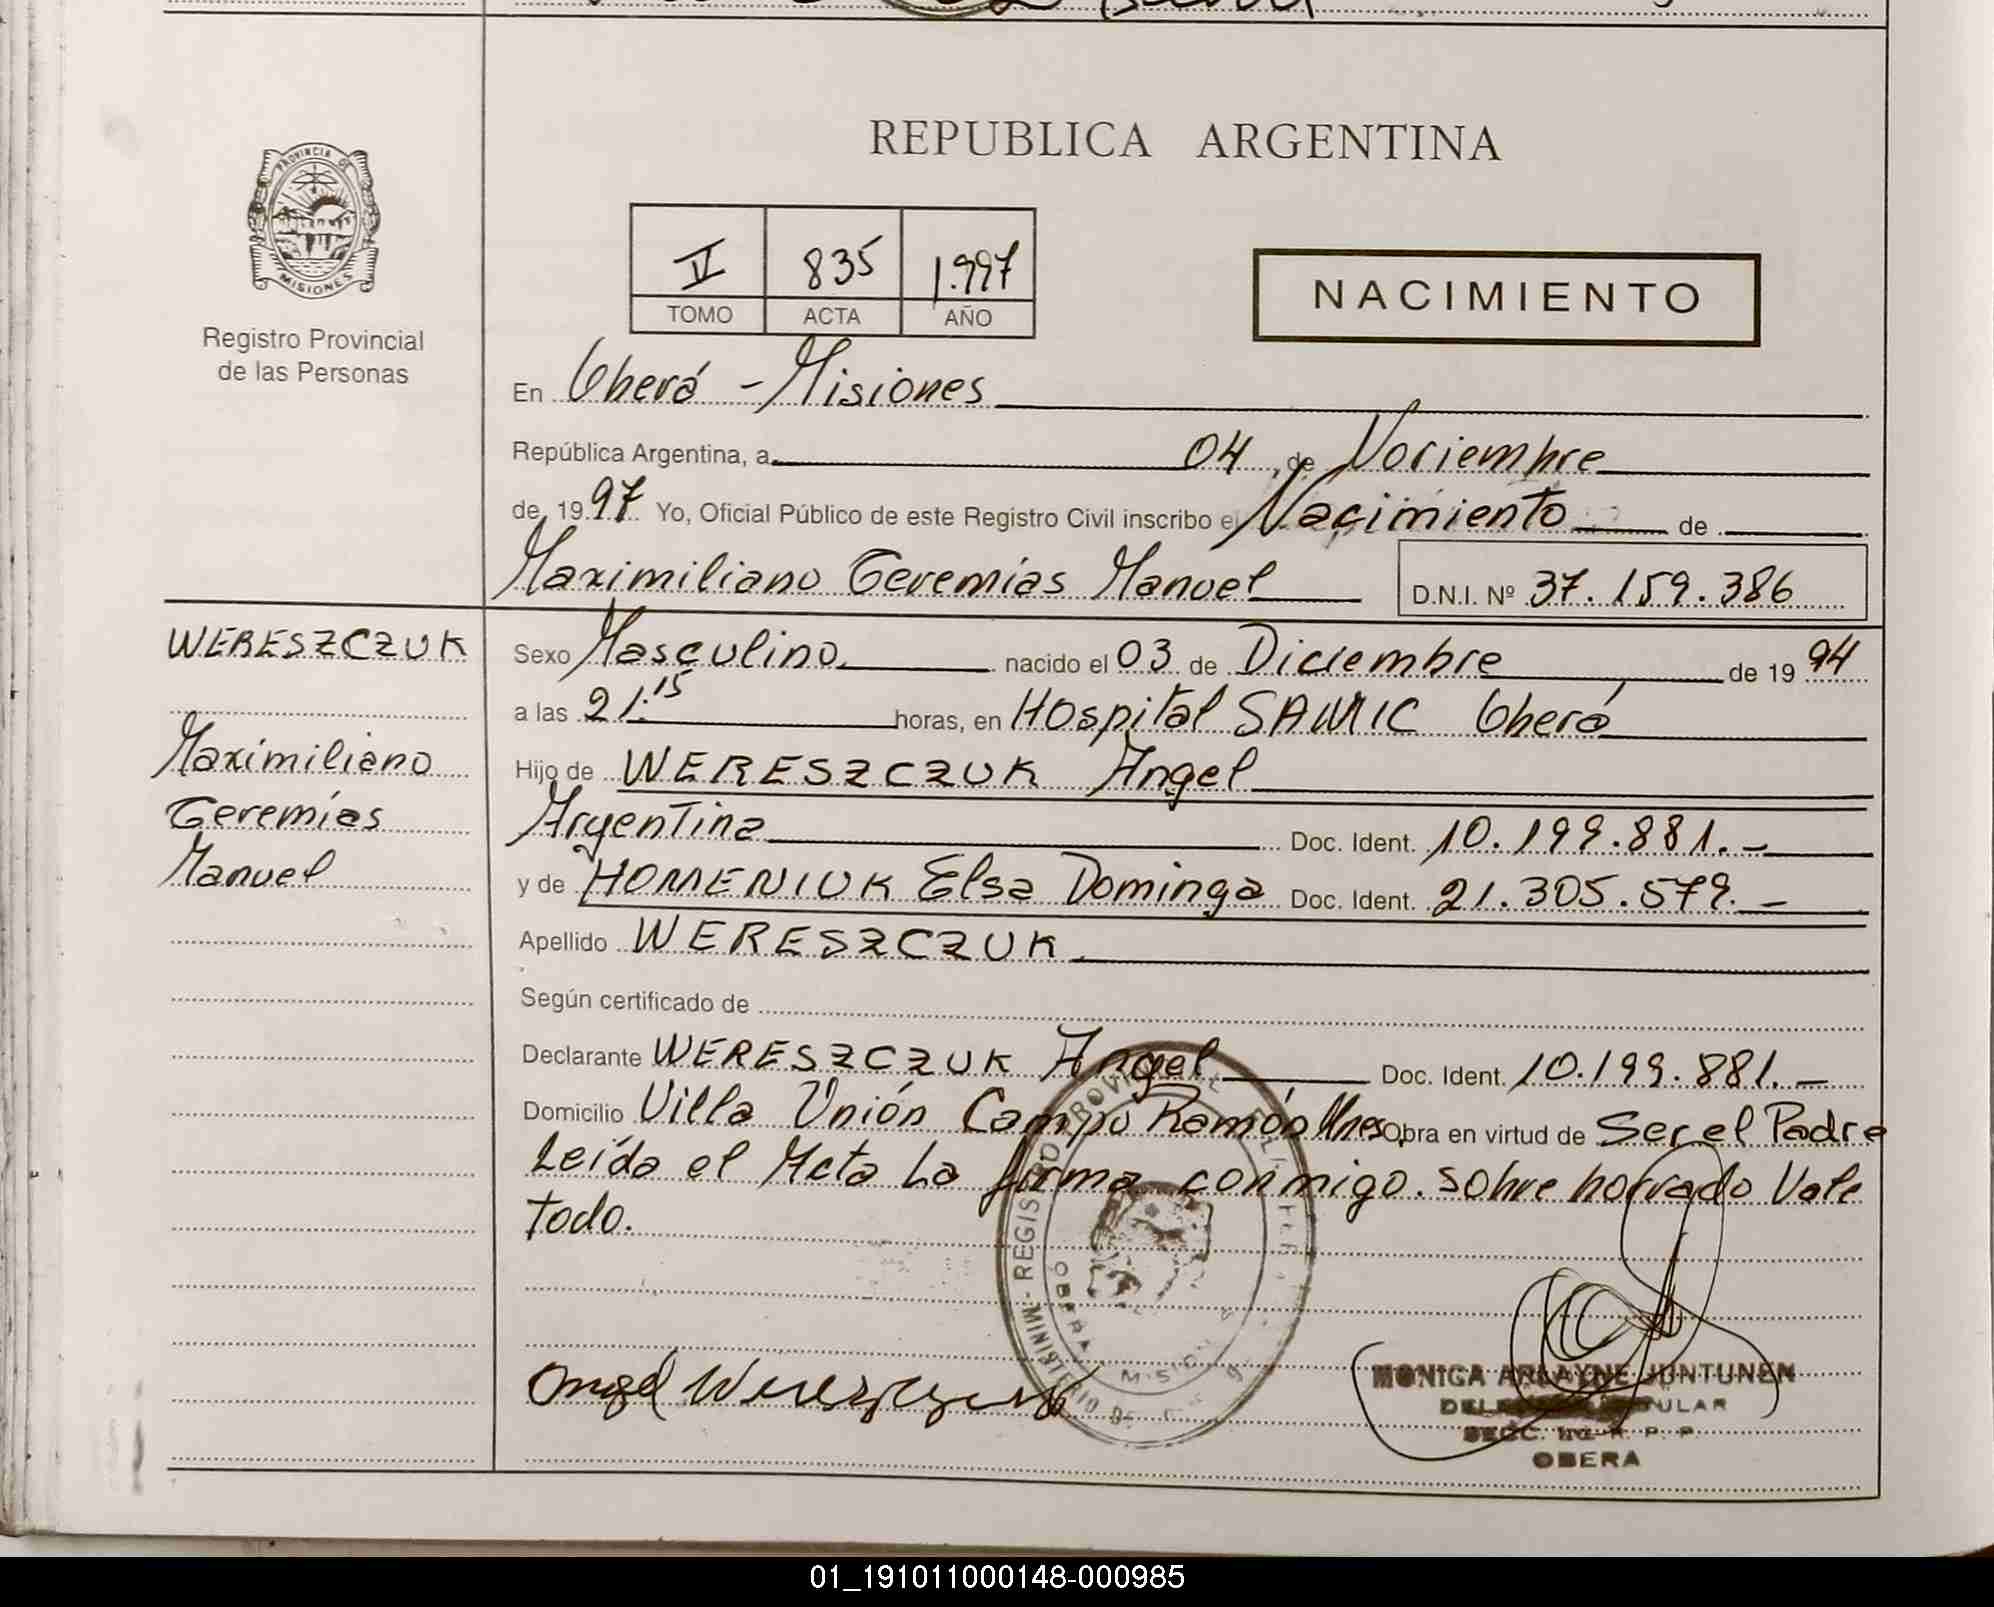 PROVINCIA DE
MISIONES
Registro Provincial
de las Personas
REPUBLICA ARGENTINA
II 835 1.997
TOMO ACTA AÑO
NACIMIENTO
En Oberá - Misiones
República Argentina, a 04 de Noviembre
de 1997 Yo, Oficial Público de este Registro Civil inscribo el Nacimiento de
Maximiliano Geremías Manuel D.N.I. Nº 37.159.386
WERESZCZUK
Maximiliano
Geremías
Manuel
Sexo Masculino nacido el 03 de Diciembre de 1994
a las 21:15 horas, en Hospital SAMIC Oberá
Hijo de WERESZCZUK Angel
Argentina Doc. Ident. 10.199.881.-
y de HOMENIUK Elsa Dominga Doc. Ident. 21.305.579.-
Apellido WERESZCZUK
Según certificado de
Declarante WERESZCZUK Angel Doc. Ident. 10.199.881.-
Domicilio Villa Unión Campo Ramón Mnes. Obra en virtud de Ser el Padre
Leída el Acta La firma conmigo. Sobre borrado Vale
todo.
Angel Wereszczuk
MONICA ARLAYNE JUNTUNEN
OBERA
01_191011000148-000985